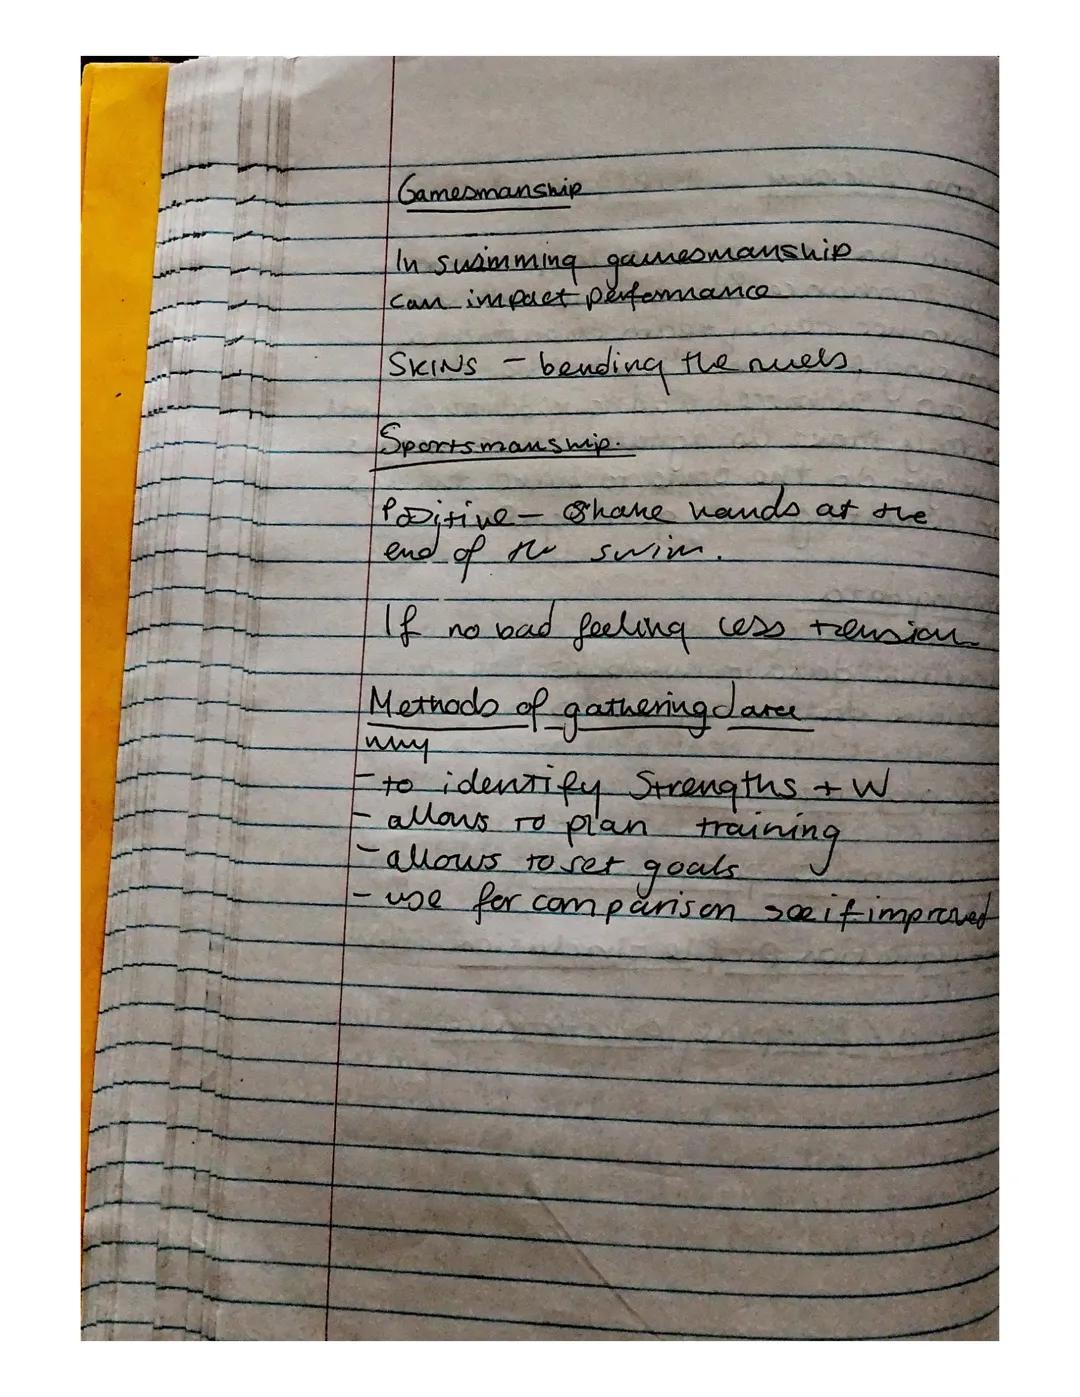 Gamesmanship
In swimming gamesmanship
can impact performance
SKINS - bending the ruels.
Sportsmanship.
Positive - Shake hands at the
end of the swim.
If no bad feeling less tension
Methods of gathering data
why
- to identify Strengths + W
- allows to plan training
- allows to set goals
- use for comparison see if improved